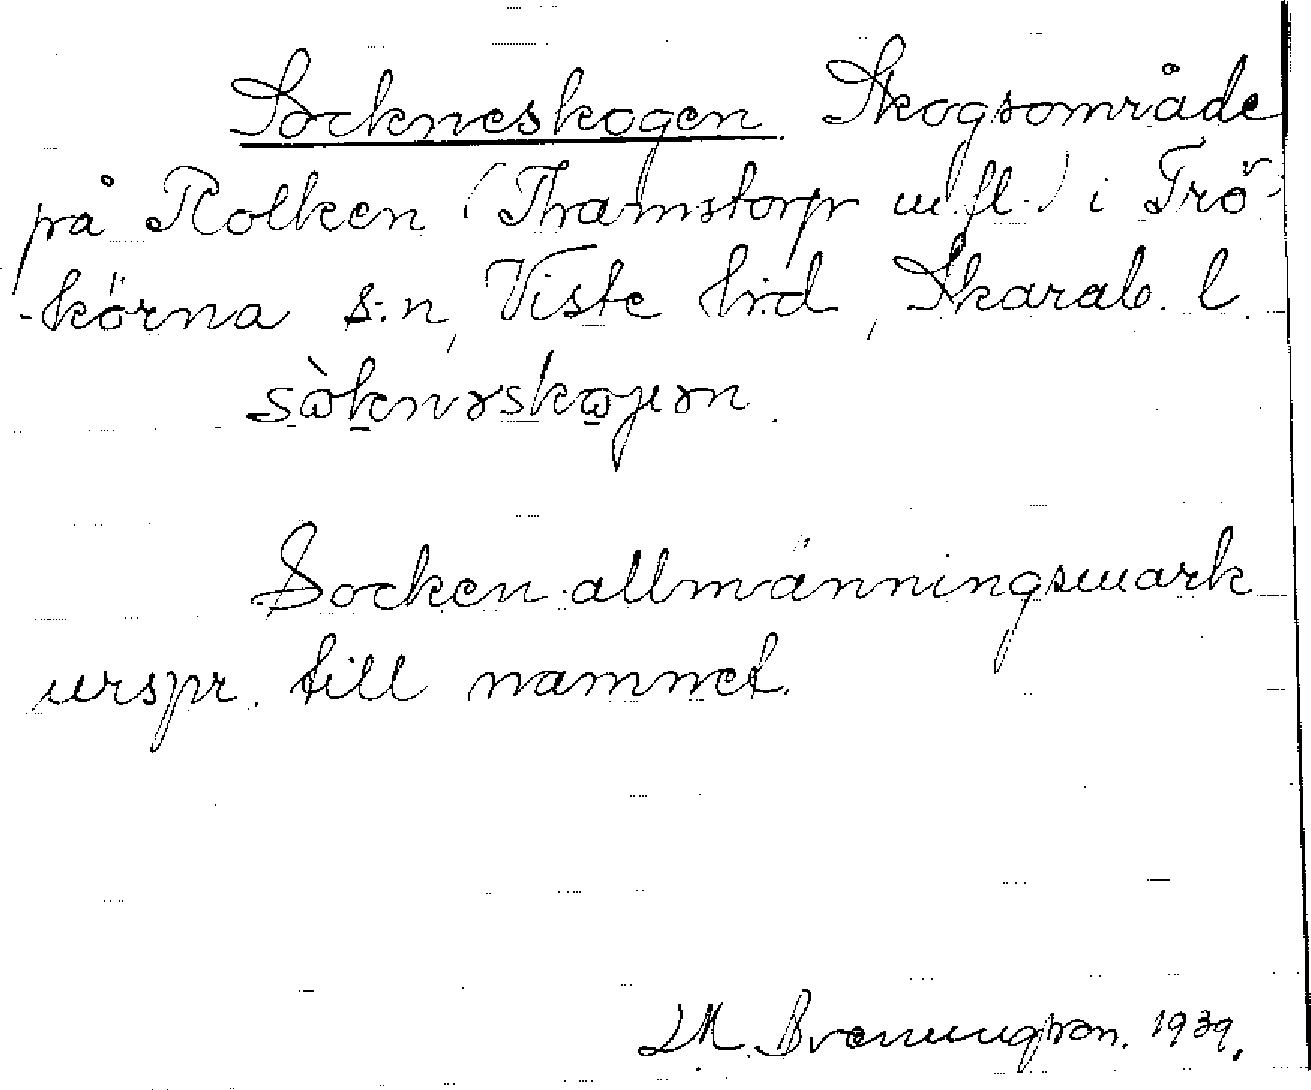 Sockneskogen. Skogsområde
på Kolken (Thamstorp m.fl.) i Trö-
-körna s:n, Viste hrd, Skarab. l.
Socken-allmänningsmark
urspr. till namnet.
1939.